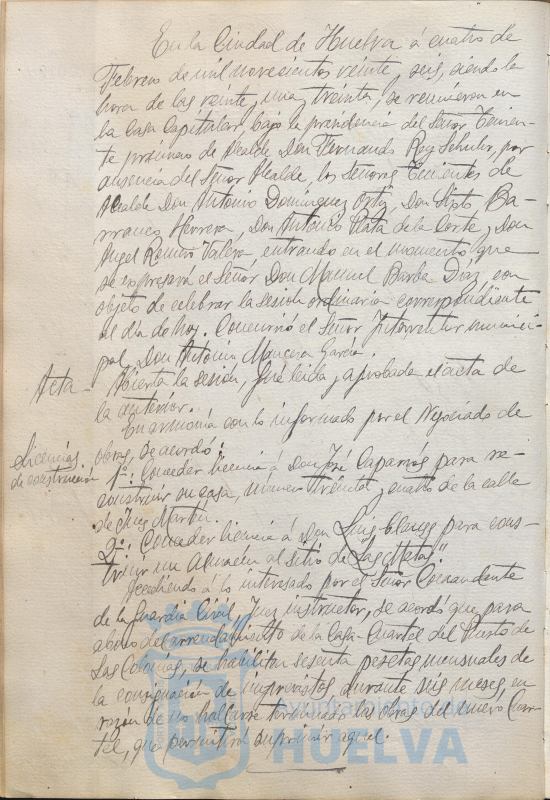 En la Ciudad de Huelva á cuatro de
Febrero de mil novecientos veinte y seis, siendo la
hora de las veinte y una y treinta, se reunieron en
la Casa Capitular, bajo la presidencia del Señor Tenien-
te primero de Alcalde Don Fernando Rey Schuler, por
ausencia del Señor Alcalde, los Señores Tenientes de
Alcalde Don Antonio Domínguez Ortiz, Don Sixto Ba-
rranco Herrera, Don Antonio Plata de la Corte y Don
Angel Román Valera entrando en el momento que
se expresará el Señor Don Manuel Barba Diaz, con
objeto de celebrar la sesión ordinaria correspondiente
al dia de hoy. Concurrió el Señor Interventor munici-
pal Don Antonio Mancera Garcia.
Acta - Abierta la sesión, fué leida y aprobada el acta de
la anterior.
En armonía con lo informado por el Negociado de
Licencias obras, se acordó:
de construcción 1º: Conceder licencia á Don José Caparros para re-
construir su casa, número treinta y cuatro de la calle
de Juez Martín.
2º: Conceder licencia á Don Luis Clauss para cons-
truir un Almacén al sitio de "Las Metas".
Accediendo á lo interesado por el Señor Comandante
de la Guardia Civil, Juez instructor, se acordó que para
abono del arrendamiento de la Casa-Cuartel del Puerto de
Las Colonias, se habiliten sesenta pesetas mensuales de
la consignación de imprevistos, durante seis meses, en
razón de no hallarse terminadas las obras del nuevo Cuar-
tel, que permitirá suprimir aquel.
ayuntamiento de
HUELVA